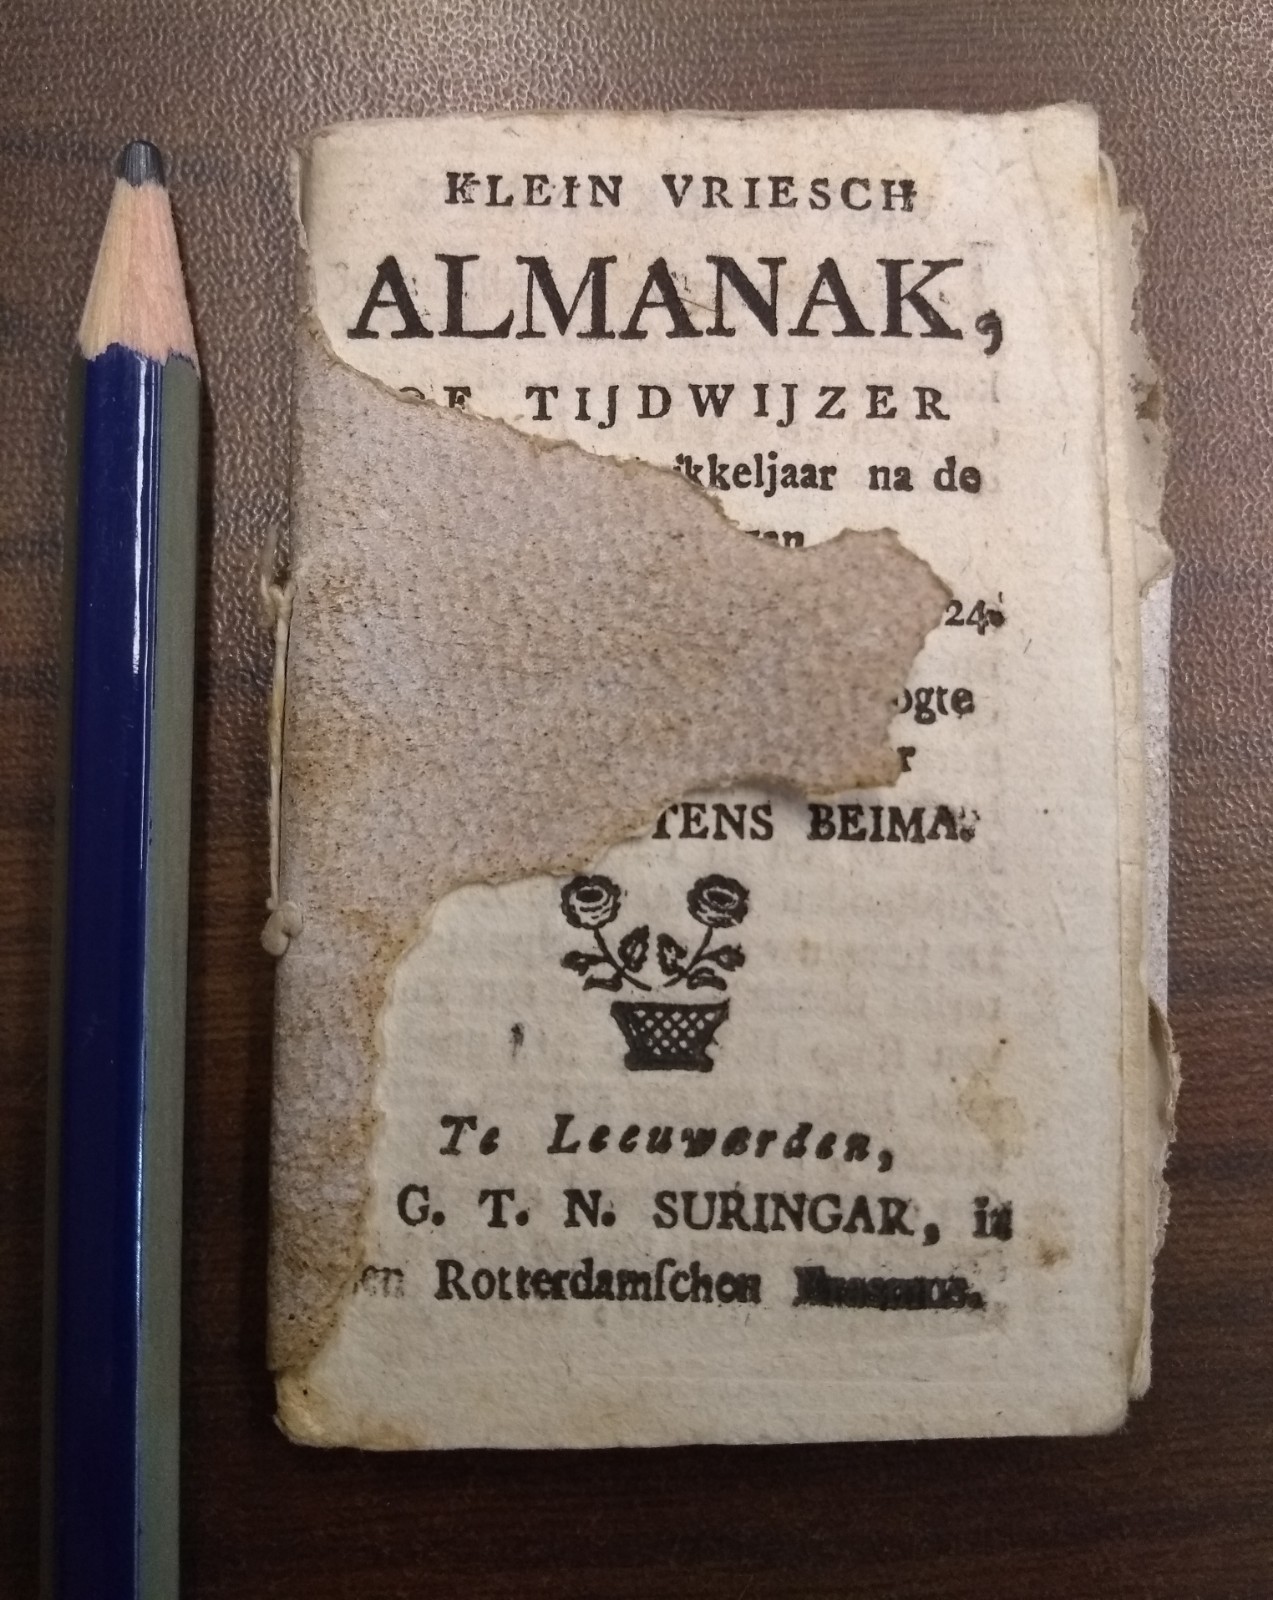 KLEIN VRIESCH
ALMANAK,
OF TIJDWIJZER
ikkeljaar na de
van
24.
ogte
r
TENS BEIMA.
Te Leeuwarden,
G. T. N. SURINGAR, in
en Rotterdamſchen